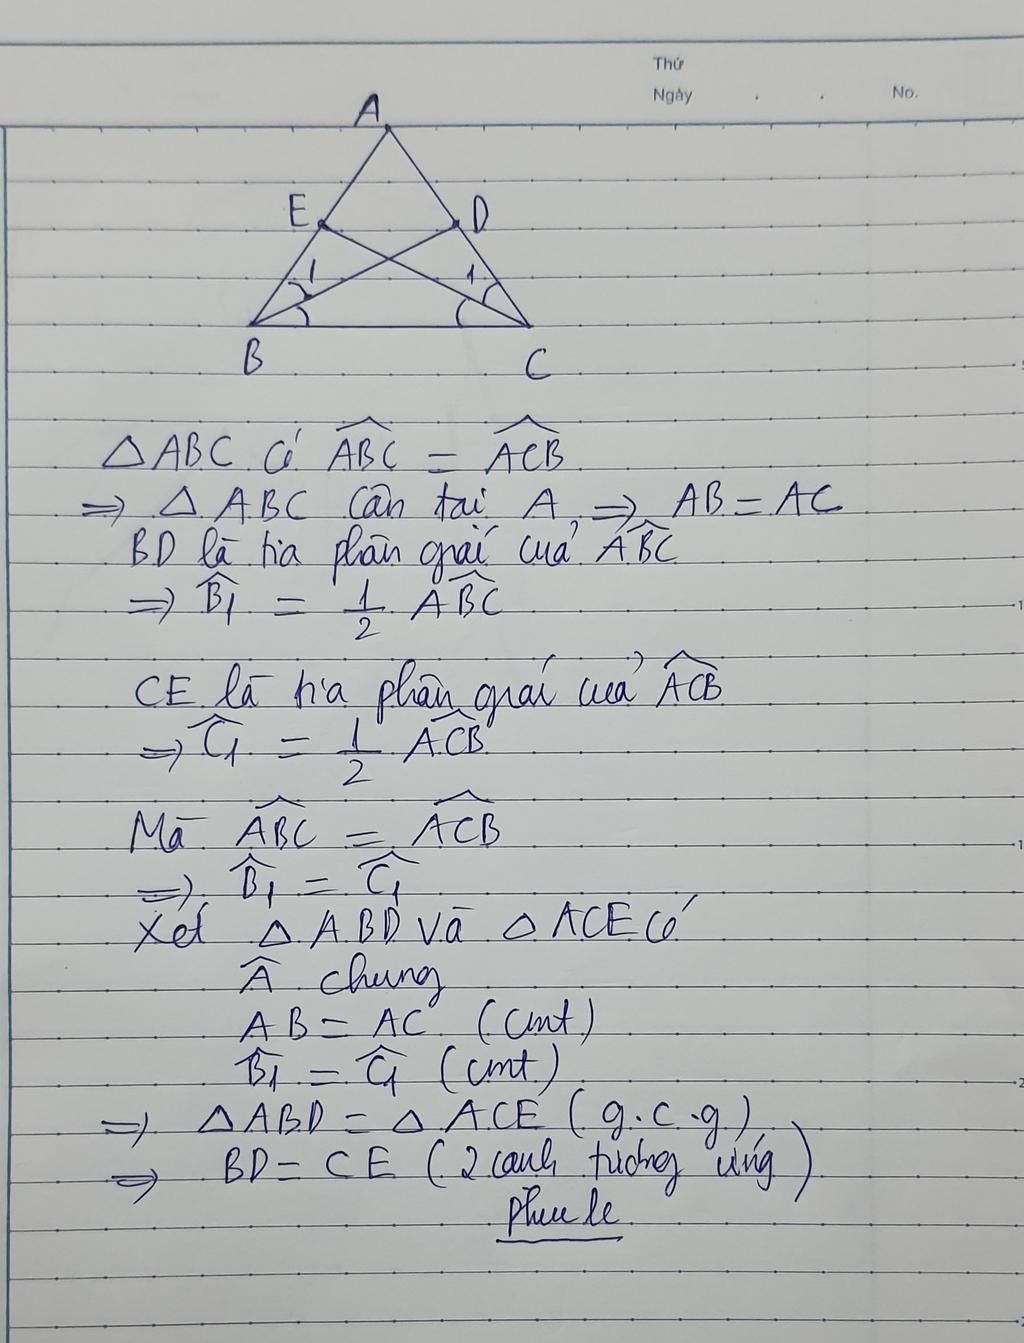 Thứ
Ngày . . No.
A
E D
1 1
B C
△ABC có \widehat{ABC} = \widehat{ACB}
=> △ ABC cân tại A => AB = AC
BD là tia phân giác của \widehat{ABC}
=> \widehat{B_1} = \frac{1}{2} \widehat{ABC}
CE là tia phân giác của \widehat{ACB}
=> \widehat{C_1} = \frac{1}{2} \widehat{ACB}
Mà \widehat{ABC} = \widehat{ACB}
=> \widehat{B_1} = \widehat{C_1}
Xét △ ABD và △ ACE có
\widehat{A} chung
AB = AC (cmt)
\widehat{B_1} = \widehat{C_1} (cmt)
=> △ABD = △ ACE (g.c.g)
=> BD = CE (2 cạnh tương ứng)